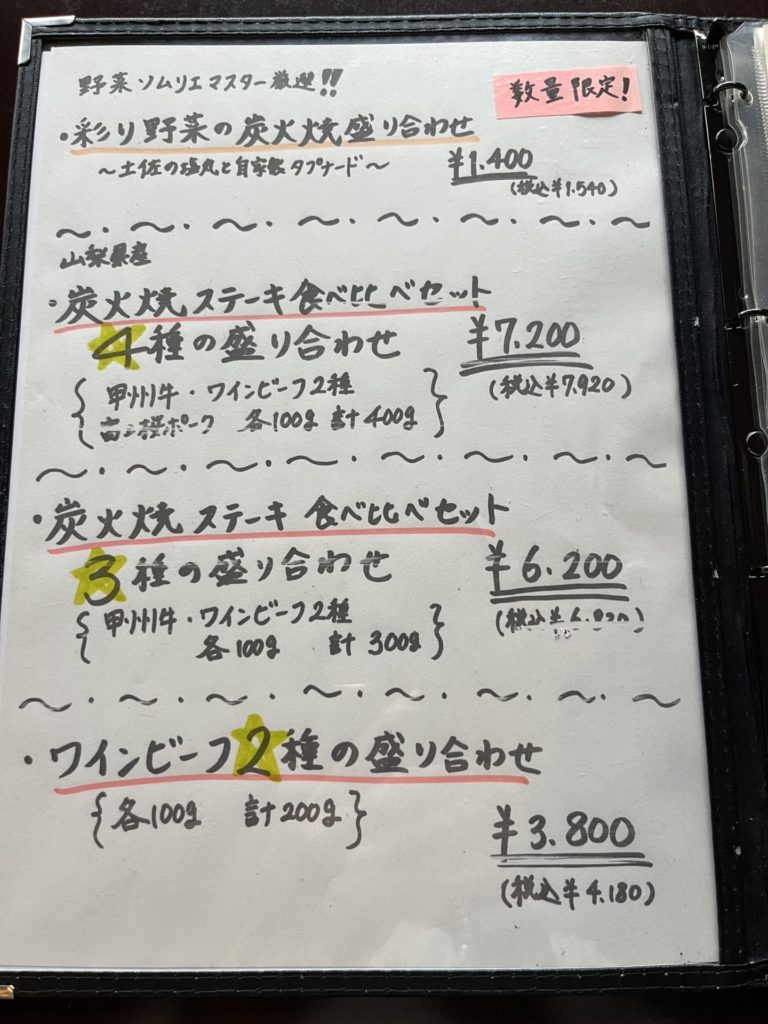 野菜ソムリエマスター厳選!!
数量限定!
・彩り野菜の炭火焼盛り合わせ
～土佐の塩丸と自家製タプナード～
¥1.400
(税込¥1.540)
～・～・～・～・～・～・～・～
山梨県産
・炭火焼ステーキ食べ比べセット
4種の盛り合わせ
¥7.200
(税込¥7.920)
{甲州牛・ワインビーフ2種
ポーク 各100g 計400g}
～・～・～・～・～・～・～・～
・炭火焼ステーキ 食べ比べセット
3種の盛り合わせ
¥6.200
(税込¥6.820)
{甲州牛・ワインビーフ2種
各100g 計300g}
～・～・～・～・～・～・～・～
・ワインビーフ2種の盛り合わせ
{各100g 計200g}
¥3.800
(税込¥4.180)